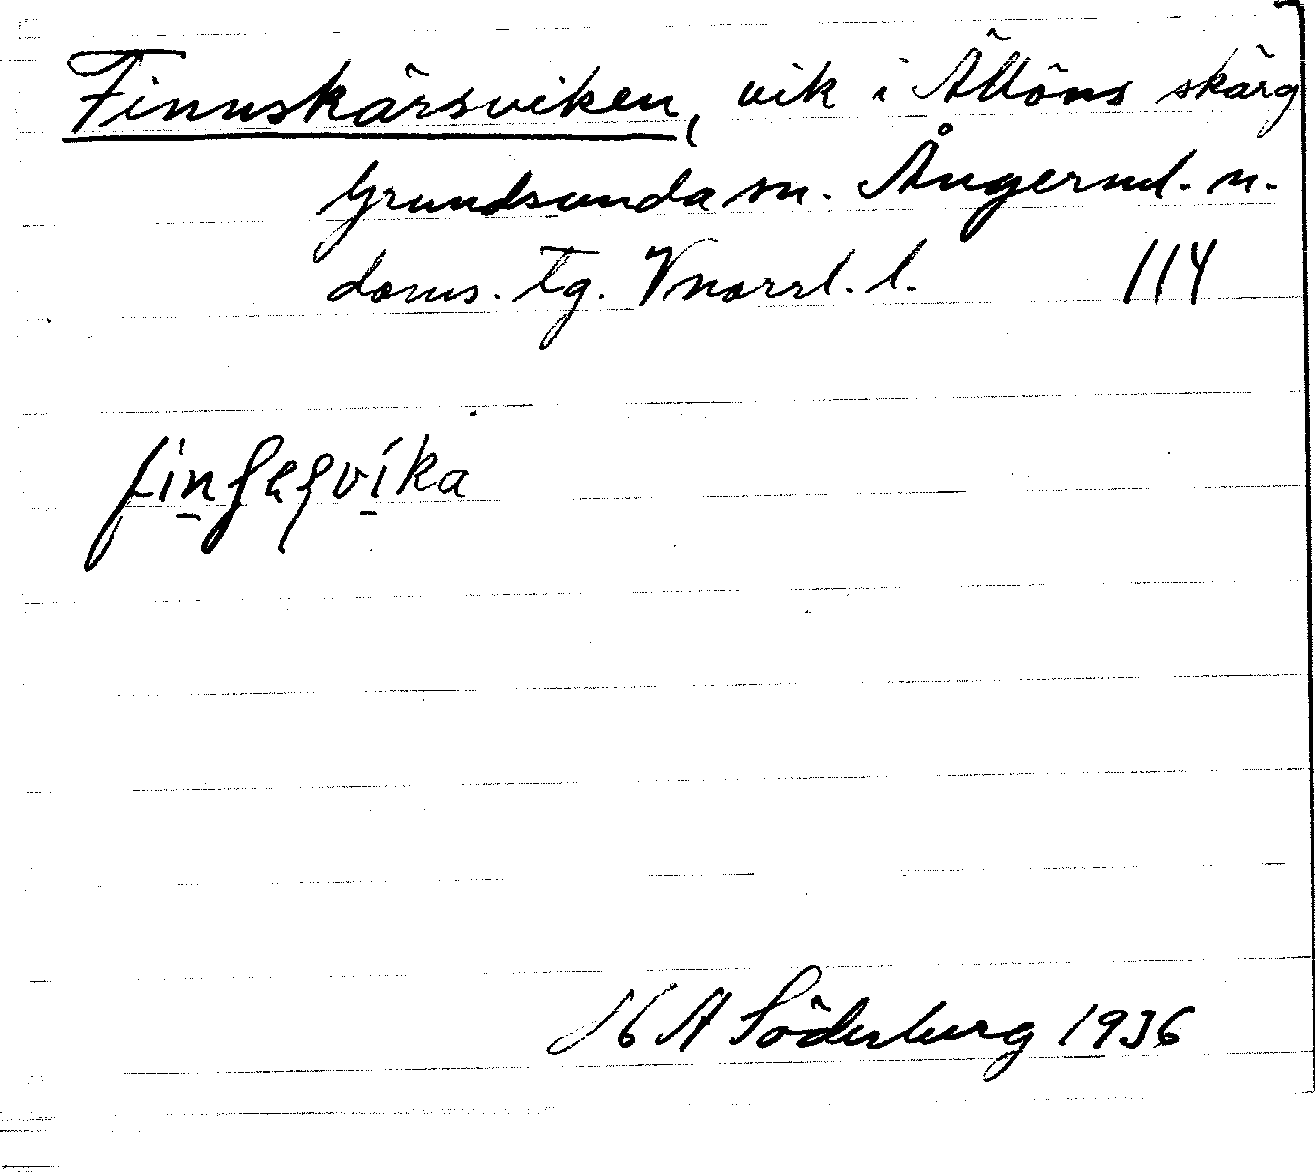 Finnskärsviken, vik i Ällöns skärg
Grundsunda sn. Ångerml. n.
doms. Tg. Vnorrl. l. 114
N A Söderberg 1936